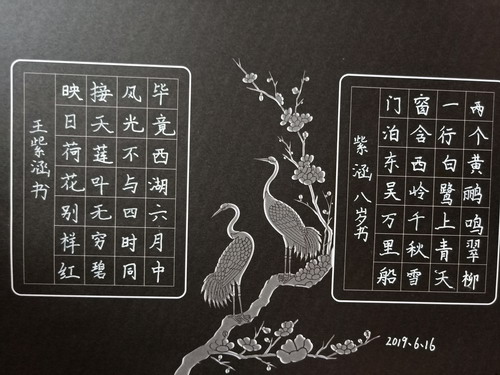 两个黄鹂鸣翠柳
一行白鹭上青天
窗含西岭千秋雪
门泊东吴万里船
紫涵 八岁书
毕竟西湖六月中
风光不与四时同
接天莲叶无穷碧
映日荷花别样红
王紫涵书
2019.6.16